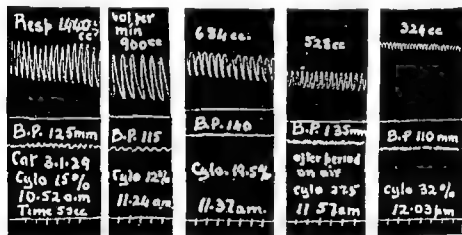 Resp 1440 cc
B.P. 125mm
Cat 3.1.29
Cyclo 15%
10.52 a.m
Time 5 sec
vol per
min
900cc
B.P. 115
Cyclo 12%
11.24 am
684 cc.
B.P. 140
Cyclo. 19.5%
11.37 am.
528cc
B.P. 135mm
after period
on air
cyclo 27.5
11 57am
324cc
B.P 110mm
cyclo 32%
12.03pm